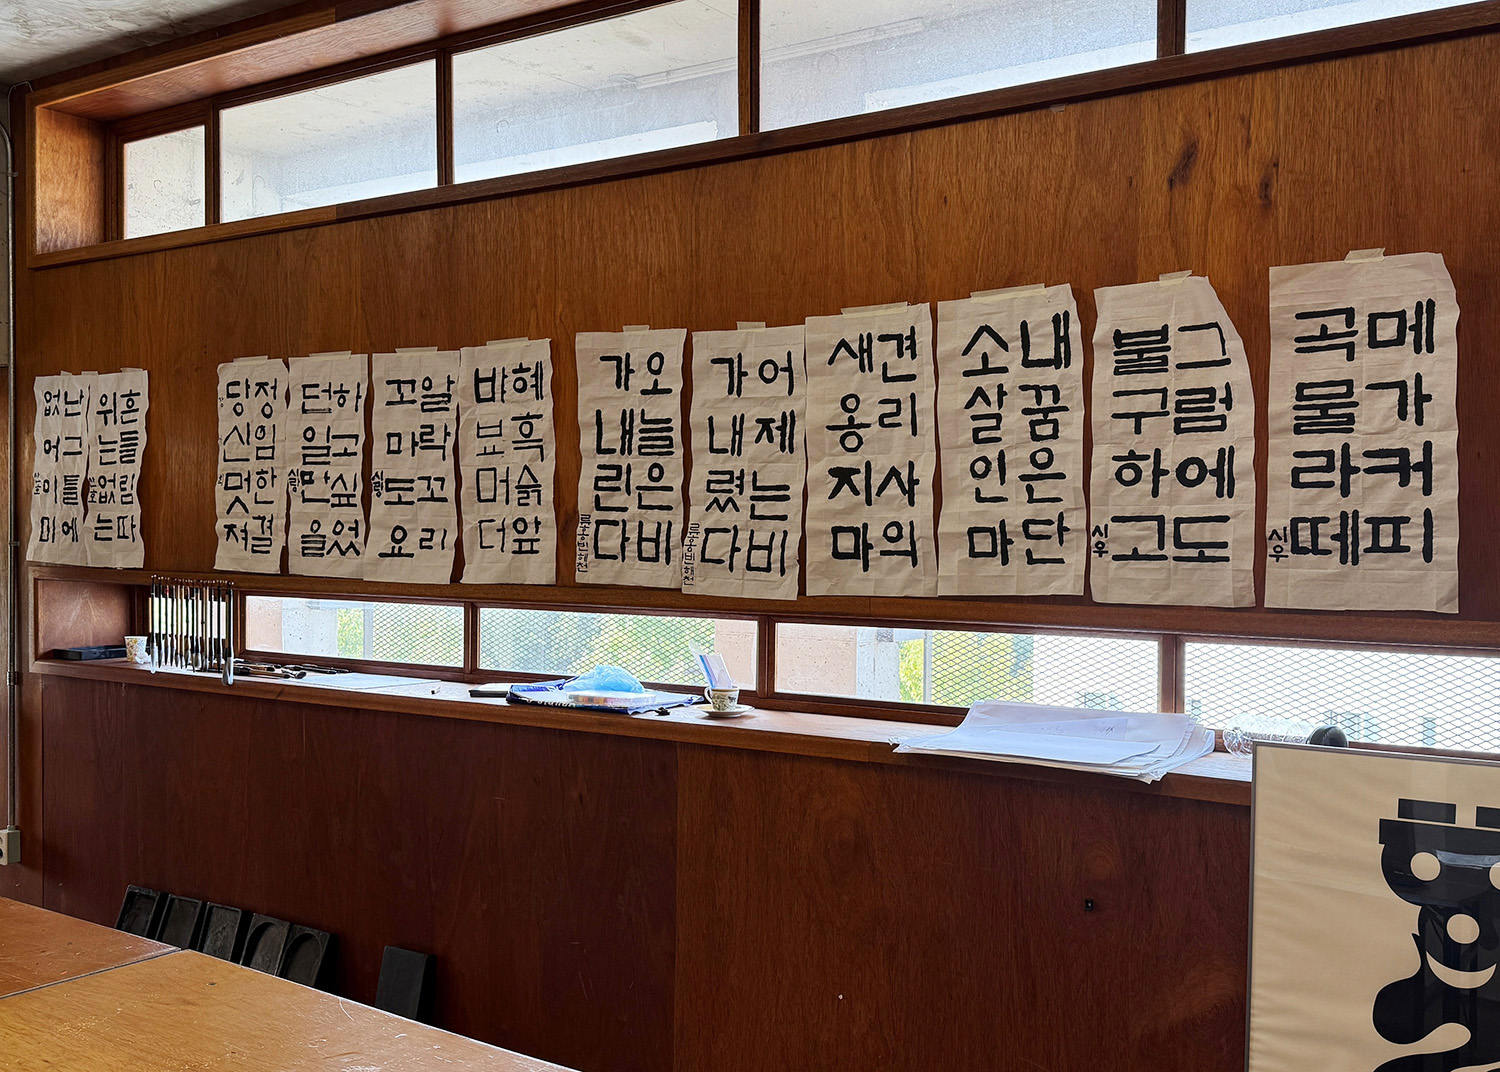 메가커피
곡물라떼
시우
그럼에도
불구하고
시우
내꿈은단
소살인마
견리사의
새옹지마
어제는비
가내렸다
오늘은비
가내린다
바보머더
알락꼬리
하고싶었
던일만을
정임한결
당신멋져
흔들림따
위는없는
난그틀에
없어이미